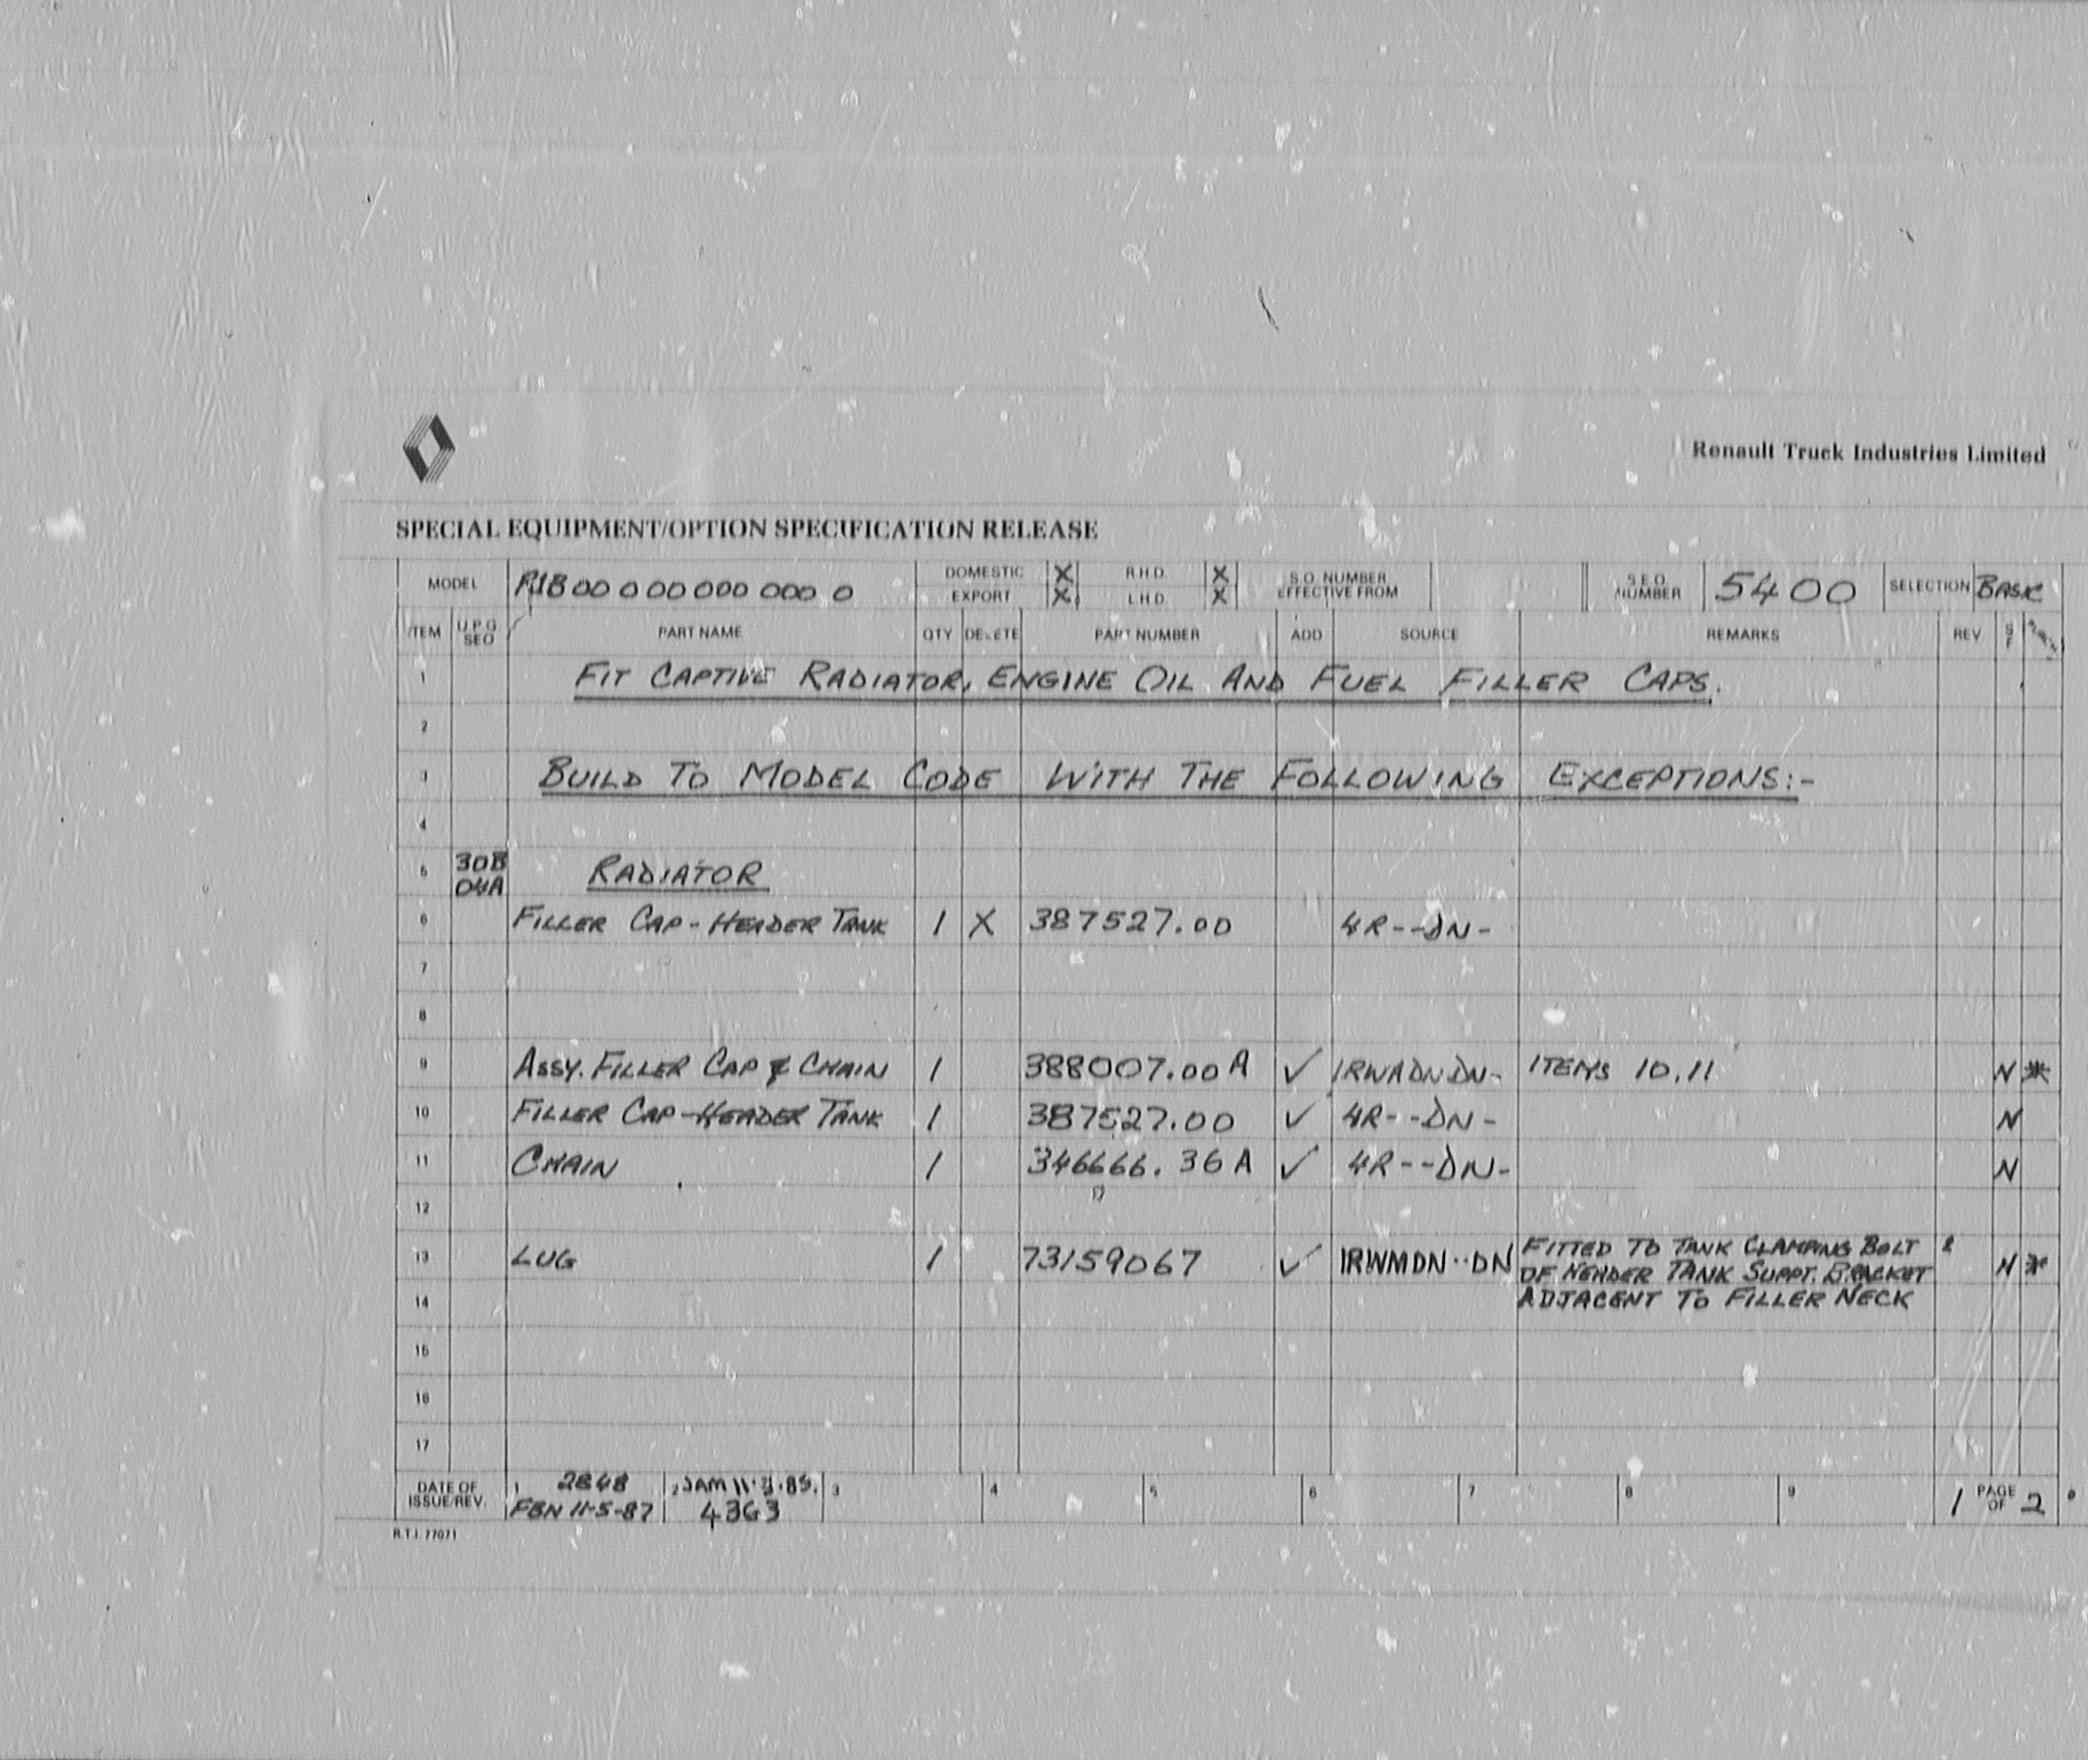 Renault Truck Industries Limited
SPECIAL EQUIPMENT/OPTION SPECIFICATION RELEASE
MODEL 00 0 00 000 000 0 DOMESTIC X R.H.D. X S.O. NUMBER S.E.O. NUMBER 5400 SELECTION BASIC
EXPORT X L.H.D. X EFFECTIVE FROM
ITEM U.P.G SEO PART NAME QTY DELETE PART NUMBER ADD SOURCE REMARKS REV S F
1 FIT CAPTIVE RADIATOR, ENGINE OIL AND FUEL FILLER CAPS.
2
3 BUILD TO MODEL CODE WITH THE FOLLOWING EXCEPTIONS:-
4
5 30B 04A RADIATOR
6 FILLER CAP - HEADER TANK 1 X 387527.00 4R--DN-
7
8
9 ASSY. FILLER CAP & CHAIN 1 388007.00 A ✓ 1RWADNDN- ITEMS 10,11 N *
10 FILLER CAP-HEADER TANK 1 387527.00 ✓ 4R--DN- N
11 CHAIN 1 346666.36 A ✓ 4R--DN- N
12
13 LUG 1 73159067 ✓ 1RWMDN--DN FITTED TO TANK CLAMPING BOLT N *
OF HEADER TANK SUPPT. BRACKET
14 ADJACENT TO FILLER NECK
15
16
17
DATE OF ISSUE/REV. 1 2848 2 JAM 3 4 5 6 7 8 9 1 PAGE OF 2
FBN 11-5-87 4363
R.T.I. 77071